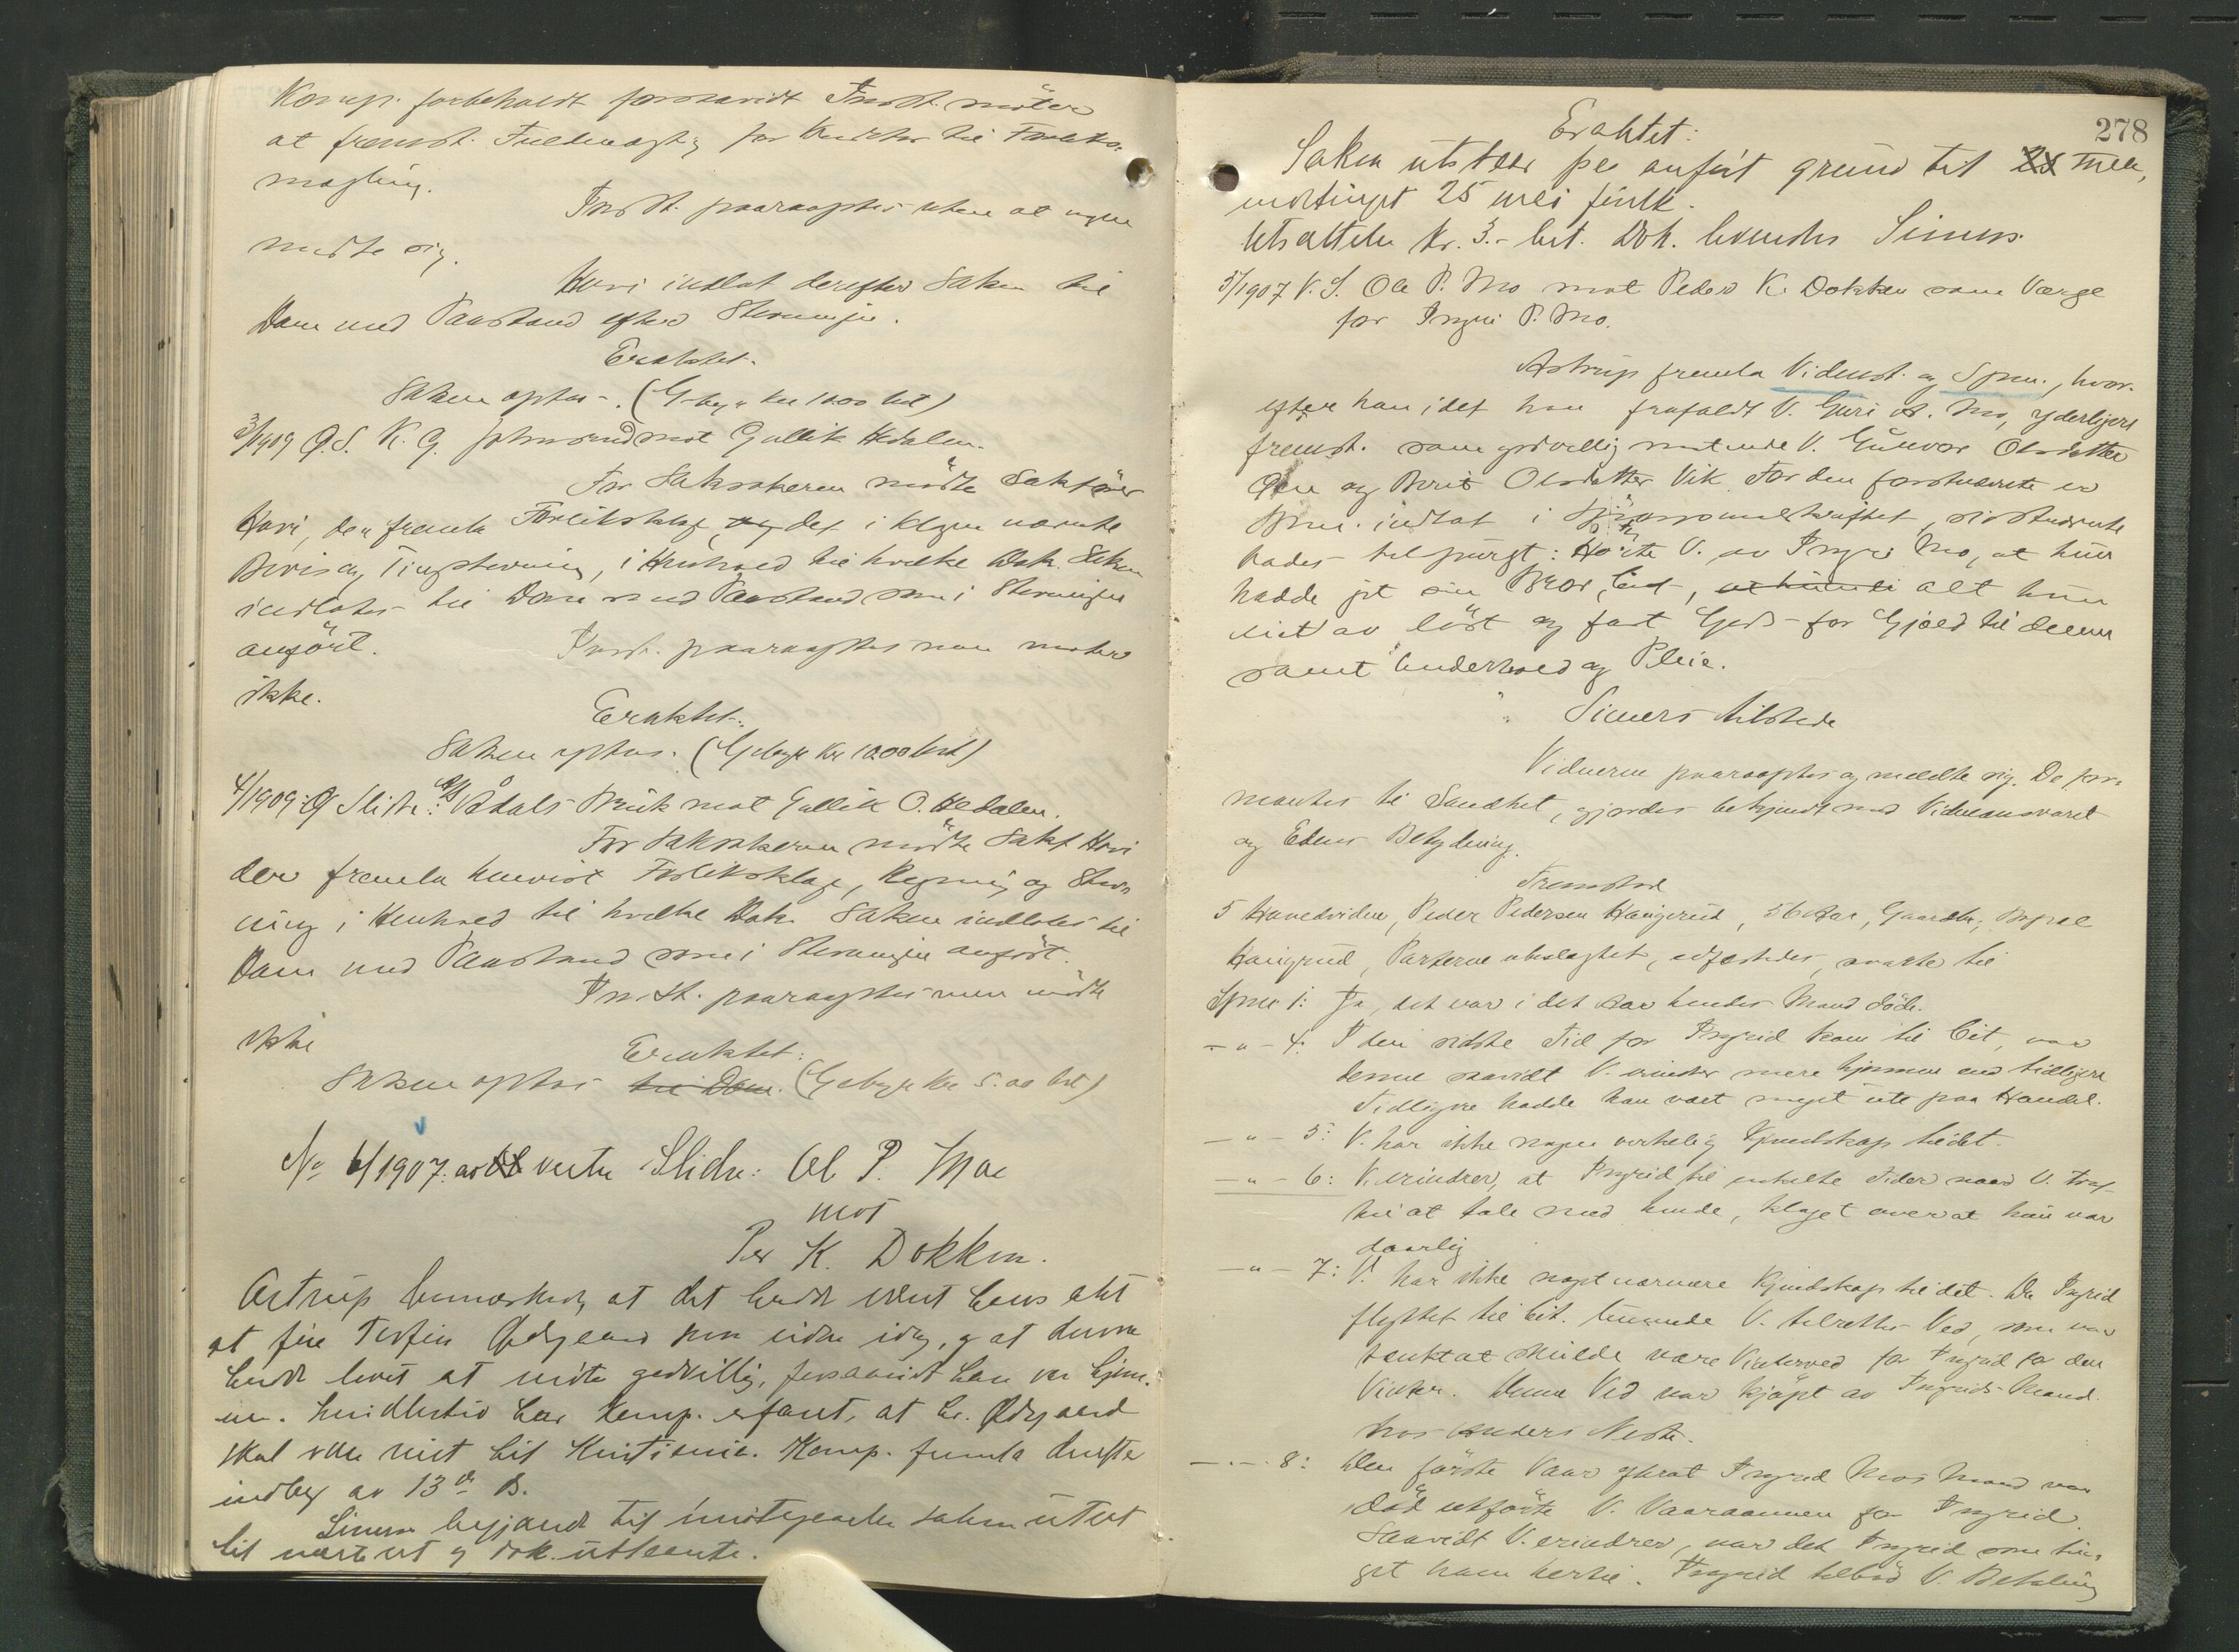 Komp. forbeholdt forsaavidt Indst. møter
at fremst. Fuldmagtig for  til Forliks-
mægling.
Indst. paaraaptes uten at ingen
meldte sig.
Hovi indlot derefter Saken til
Dom med Paastand efter Stevningen.
Eraktet.
Saken optas. (Gebyr Kr 10.00 bet)
3/1909 Ø.S. K. G. Johnsrud mot Gullik Hedalen.
For Saksøkeren mødte Sakfører
Hovi, der fremla Forliksklage, og det i klagen nævnte
Bevis og Tingstevning, i Henhold til hvilke Dok. Saken
indlotes til Dom med Paastand som i Stevningen
anført. Indst. paaraaptes men møter
ikke.
Eraktet.
Saken optas. (Gebyr Kr 10.00 bet)
4/1909: Ø Slidre: A/S Vådals Bruk mot Gullik O. Hedalen.
For Saksøkeren mødte Sakf Hovi
der fremla henvist Forliksklage, Regning og Stev-
ning i Henhold til hvilke Dok. Saken indlotes til
Dom med Paastand som i Stevningen anført.
Indst. paaraaptes men mødte
ikke
Eraktet:
Saken optas til Dom. (Gebyr Kr 5.00 bet)
No 6/1907. av vestre Slidre: Ol P. Moe
mot
Per K. Dokken.
Astrup bemærket, at det hadde været hans akt
at føre Torfin Ødegaard som vidne idag, og at denne
hadde lovet at møte godvillig, forsaavidt han var hjem-
me. Imidlertid har Komp. erfaret, at hr. Ødegaard
skal være reist til Kristiania. Komp. fremla derefter
indlæg av 13de ds.
Simers  saken utsat
til næste ret og dok. utlaante.
278
Eraktet:
Saken utstaar paa anført grund til
 25 mai førstk.
Utsættelse Kr. 3.- bet. Dok. laantes Simers
5/1907 V. S. Ole P. Mo mot Peder K. Dokken som Værge
for Ingri P. Mo.
Astrup fremla Vidnest. og Spm., hvor-
efter han idet han frafaldt V. Guri  Mo, yderligere
fremst. som godvillig møtende V. Gunvor Olsdatter
 og Berit Olsdatter Vik. For den førstnævnte er
Spm. indtat i Spørsmaalskriftet, sidstnævnte
bades tilspurgt: Hørte V. av Ingri Mo, at hun
hadde git sin Bror, Eit, at hun alt hun
eiet av løst og fast Gods for Gjæld til denne
samt Underhold og Pleie.
Simers tilstede
Vidnerne paaraaptes og meldte sig. De for-
mantes til Sandhet, gjordes bekjendt med Vidneansvaret
og Edens Betydning.
Fremstod
5 Hovedvidne, Peder Pedersen Haugerud, 56 Aar, Gaardbr.,
Haugrud, Parterne ubeslægtet, edfæstedes, svarte til
Spm 1: Ja, det var i det Aar hendes Mand døde.
-"- 4: I den sidste Tid før Ingrid kom til Eit, var
denne saavidt V. minder mere hjemme end tidligere
Tidligere hadde han vært meget ute paa Handel.
-"- 5: V. har ikke nogen virkelig Kjendskap til det.
-"- 6: V. erindrer, at Ingrid til enkelte Tider naar V. traf
til at tale med hende, klaget over at hun var
daarlig
-"- 7: V. har ikke noget nærmere Kjendskap til det. Da Ingrid
flyttet til Eit. tømmede V. tilrettes Ved, som var
tænkt at skulde være Vinterved for Ingrid for den
Vinter. Denne Ved var kjøpt av Ingrids Mand
hos Anders Neste.
-"- 8: Den første Vaar efterat Ingrid Mos Mand var
død utførte V. Vaaraannen for Ingrid.
Saavidt V. erindrer, var det Ingrid som tin-
get ham hertil. Ingrid tilbød V. Betaling